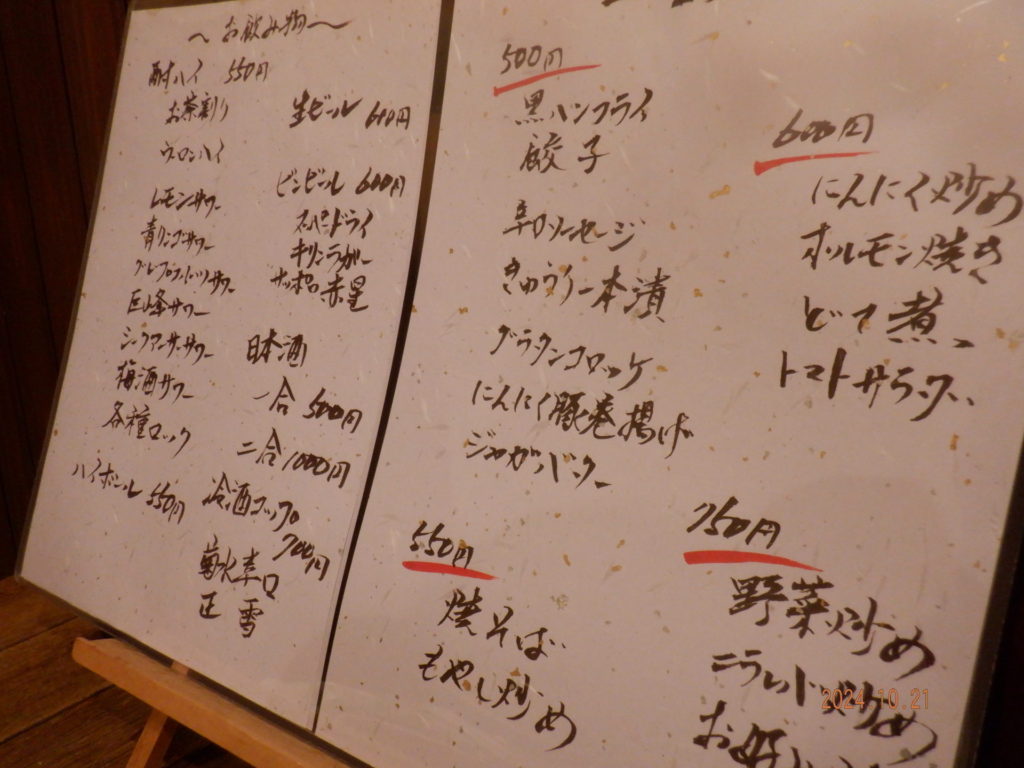 〜お飲み物〜
酎ハイ 550円
お茶割り
ウーロンハイ
レモンサワー
青リンゴサワー
グレープフルーツサワー
巨峰サワー
シークワーサーサワー
梅酒サワー
各種ロック
ハイボール 550円
生ビール 600円
ビンビール 600円
スーパードライ
キリンラガー
サッポロ赤星
日本酒
一合 500円
二合 1000円
冷酒コップ
700円
菊水辛口
正雪
500円
黒ハンフライ
餃子
辛口ソーセージ
きゅうり一本漬
グラタンコロッケ
にんにく豚巻揚げ
ジャガバター
550円
焼そば
もやし炒め
600円
にんにく炒め
ホルモン焼き
どて煮
トマトサラダ
750円
野菜炒め
ニラレバ炒め
お好み
2024.10.21